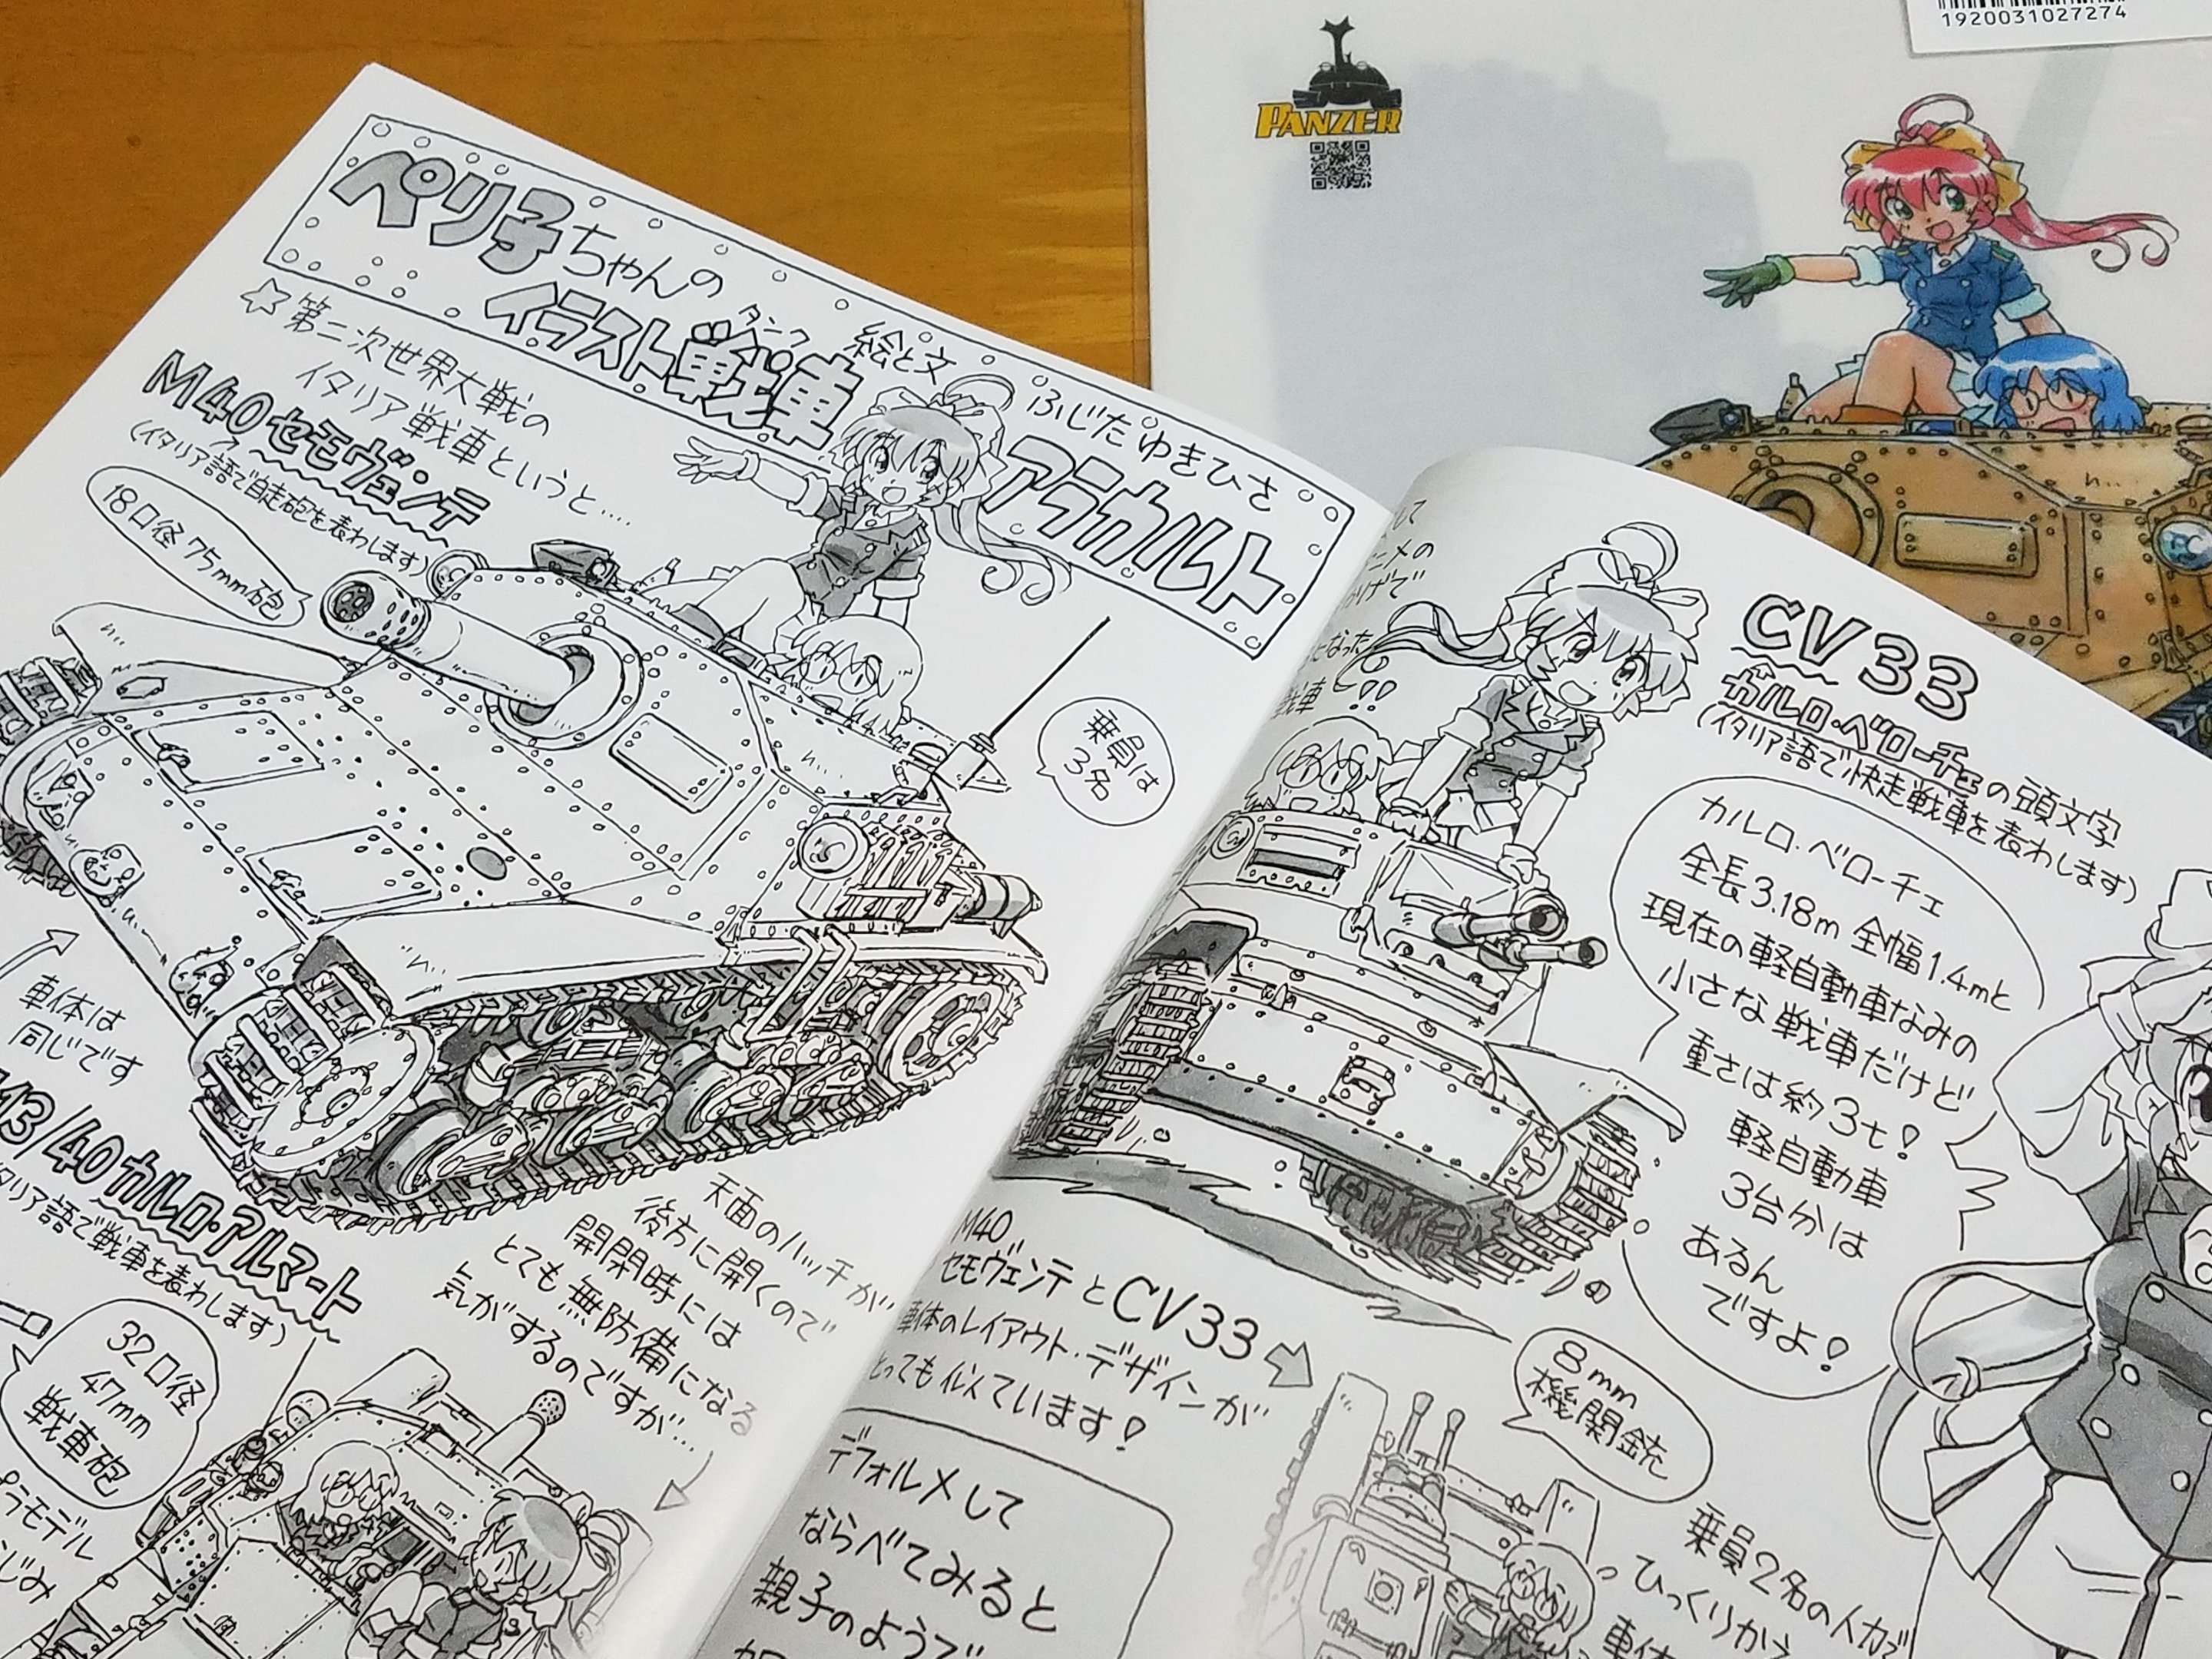 ペリ子ちゃんの
イラスト戦車アラカルト
タンク
絵と文 ふじたゆきひさ
☆第二次世界大戦の
イタリア戦車というと....
M40セモヴェンテ
(イタリア語で自走砲を表わします)
18口径75mm砲
乗員は
3名
車体は
同じです
13/40カルロ・アルマート
タリア語で戦車を表わします)
32口径
47mm
戦車砲
プラモデル
じみ
天面のハッチが
後方に開くので
開閉時には
とても無防備になる
気がするのですが...
して
ニメの
かげで
になった
戦車!!
CV33
カルロ・ベローチェの頭文字
(イタリア語で快走戦車を表わします)
カルロ・ベローチェ
全長3.18m 全幅1.4mと
現在の軽自動車なみの
小さな戦車だけど
重さは約3t!
軽自動車
3台分は
あるん
ですよ!
M40
セモヴェンテとCV33
車体のレイアウト・デザインが
とっても似ています!
8mm
機関銃
デフォルメして
ならべてみると
親子のようで
乗員2名の人力で
ひっくりかえ
車体
PANZER
1920031027274